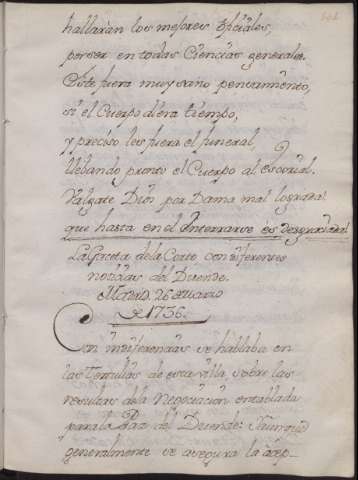 hallaràn los mejores ofiziales,
por ser en todas Ciencias generales.
Este fuera muy sano pensamiento,
si el Cuerpo diera tiempo,
y preciso les fuera el funeral,
llebando pronto el Cuerpo al escorial.
Valgate Dios por Dama mal lograda!
que hasta en el Interrarse és desgraciada!
La Gaceta de la Corte con diferentes
noticias del Duende.
Madrid 26 de
de 1736.
Con indiferencias se hablaba en
las Tertulias de esta villa, sobre las
resultas de la Negociacion entablada
para la Paz del Duende: Y aunque
generalmente se asegura la acep-